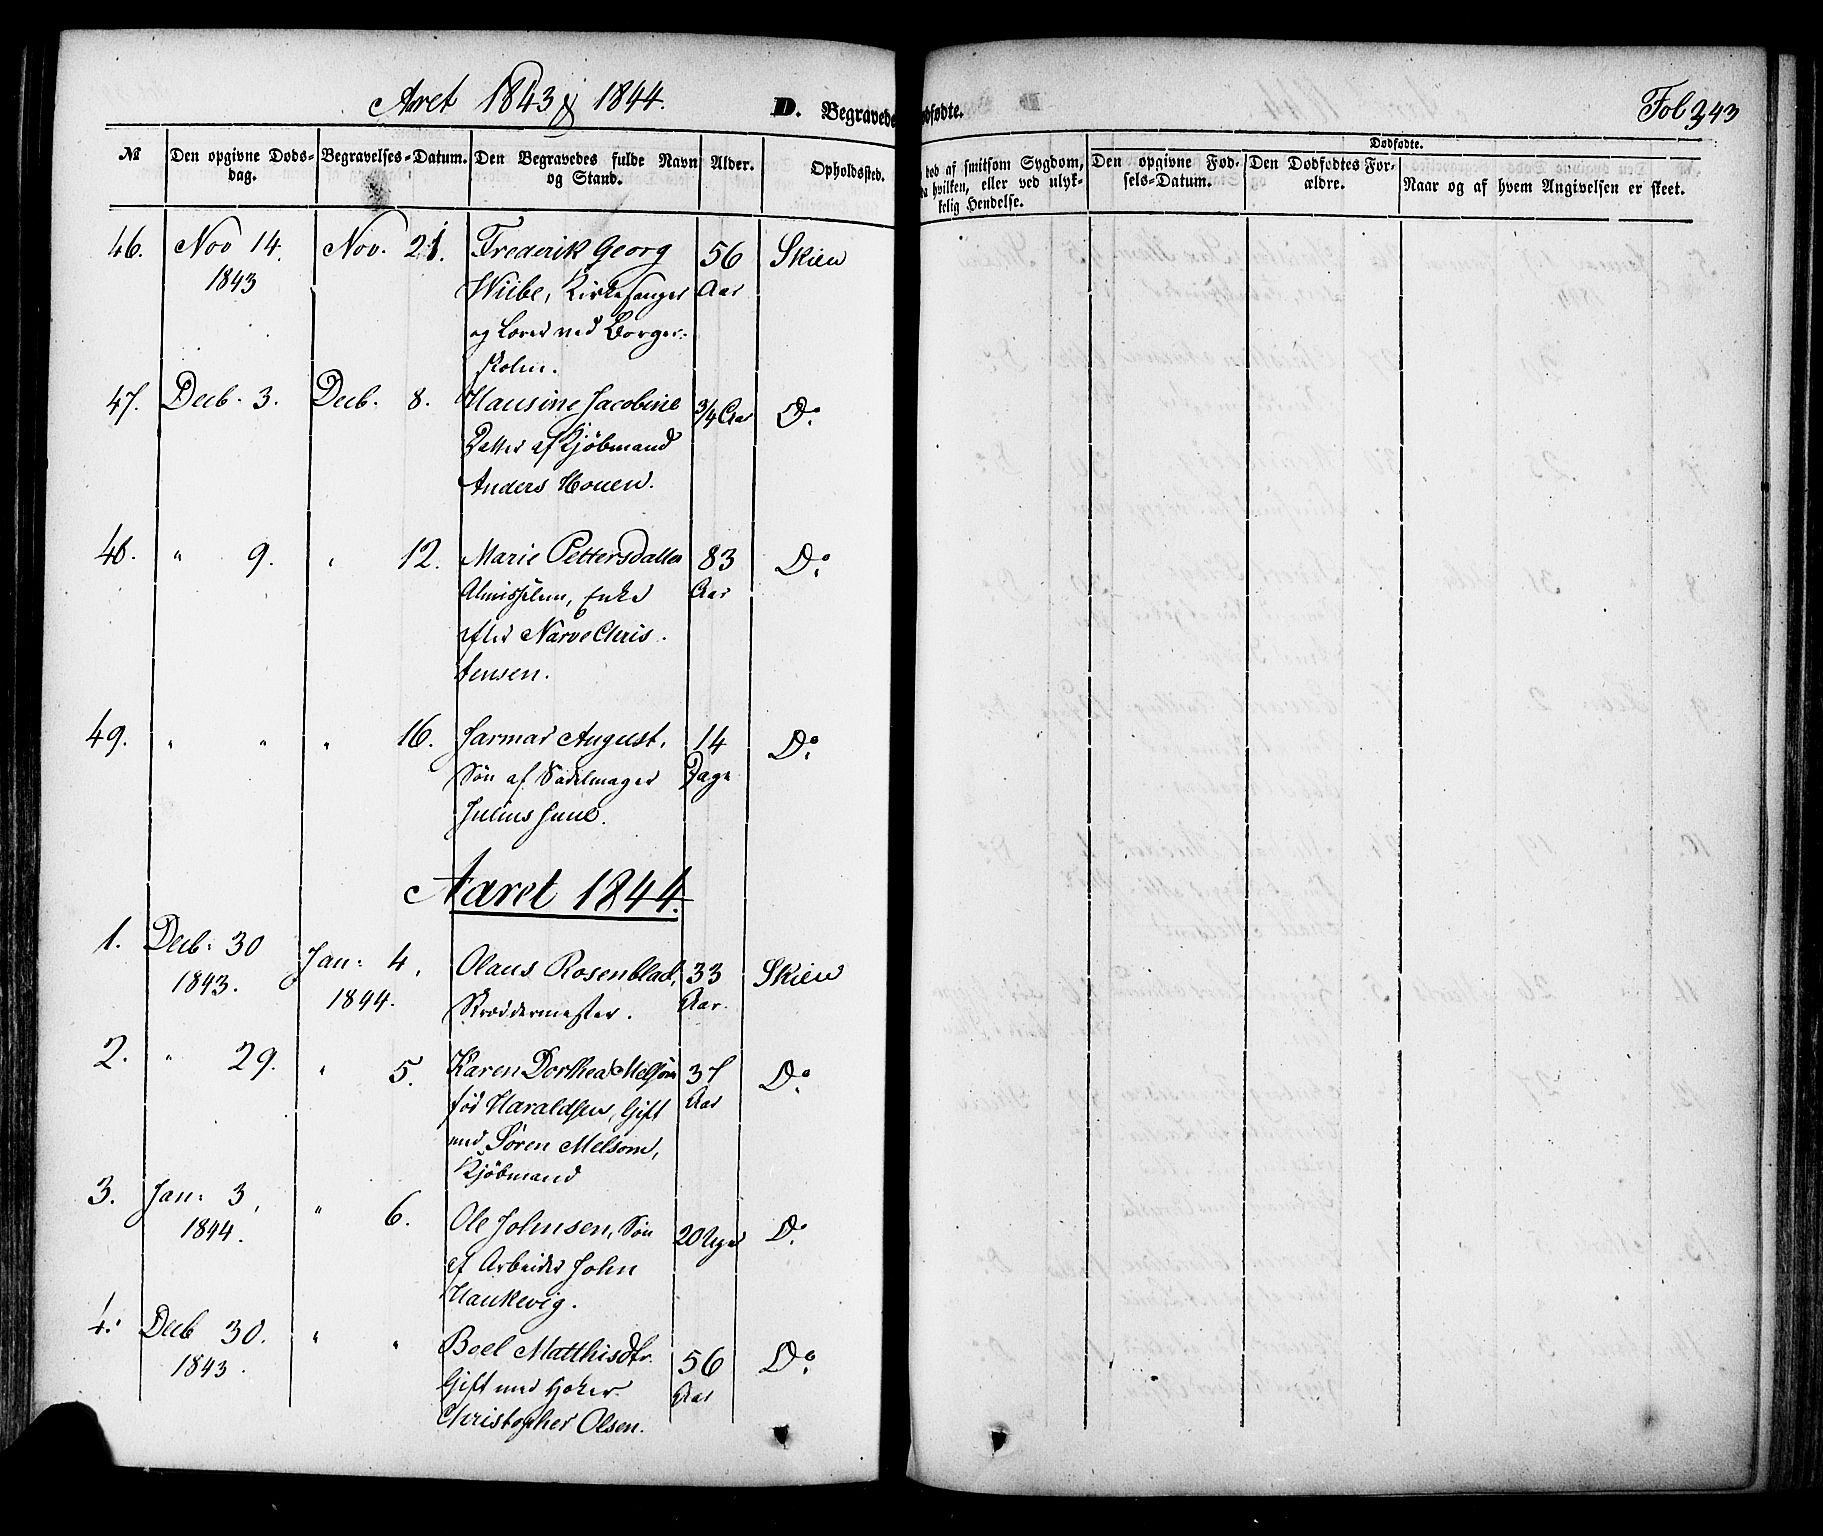 Aaret 1843 & 1844.
D. Begravede
Dødfødte.
Fol 343
№
Den opgivne Døds-
dag.
Begravelses-Datum.
Den Begravedes fulde Navn
og Stand.
Alder.
Opholdssted.
død af smitsom Sygdom,
hvilken, eller ved ulyk-
kelig Hendelse.
Dødfødte.
Den opgivne Fød-
sels-Datum.
Den Dødfødtes For-
ældre.
Naar og af hvem Angivelsen er skeet.
46. Nov 14. Nov. 21. Frederik Georg 56 Skien
1843 Wiibe, Kirkesanger Aar
og Lærer ved Borger-
skolen.
47. Decb. 3. Decb. 8. Hansine Jacobine 3/4 Aar Do
Datter af Kjøbmand
Anders Houen.
48. " 9. " 12. Marie Pettersdatter 83 Do
Almisselem, Enke Aar
efter Narve Chris
tensen.
49. " " " 16. Jarmar August, 14 Do
Søn af Sadelmager Dage
Julius Juul.
Aaret 1844.
1. Decb: 30 Jan: 4, Olaus Rosenblad, 33 Skien
1843. 1844. Skræddermester. Aar.
2. " 29. " 5. Karen Dorthea Melsom 37 Do
fød Haraldsen, Gift Aar
med Søren Melsom,
Kjøbmand
3. Jan: 3, " 6. Ole Johnsen, Søn 20 Uger Do
1844. af Arbeider John
Haukevig.
4. Decb 30. " " Boel Matthisdtr. 56 Do
1843. Gift med Høker Aar
Christopher Olsen.